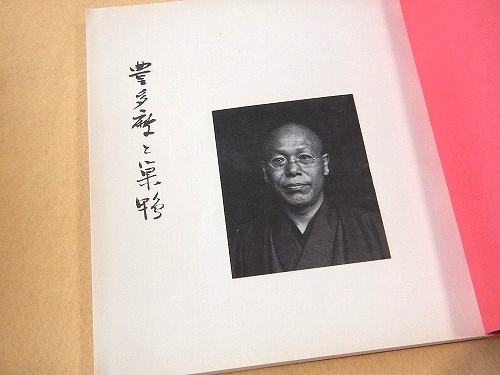 豊多摩と巣鴨